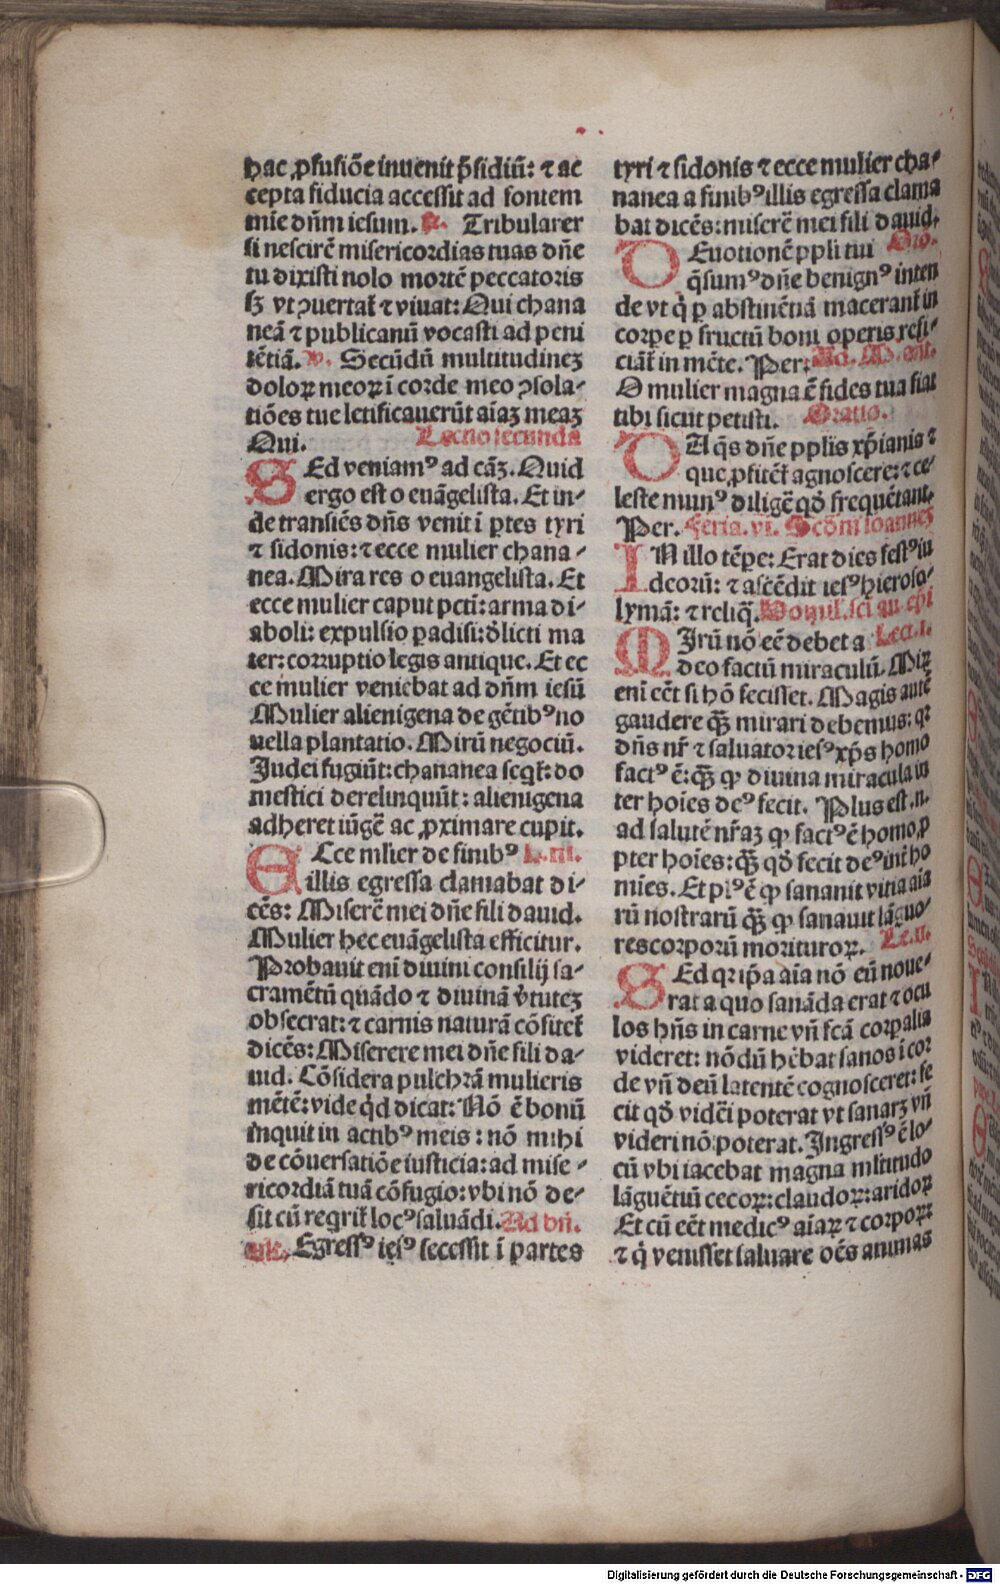 hac ꝓfusiõe inuenit p̃sidiũ: ⁊ ac
cepta fiducia accessit ad fontem
mie dñm iesum. ꝶ. Tribularer
si nescirẽ misericordias tuas dñe
tu dixisti nolo mortẽ peccatoris
sꝫ vt ꝯuertat̃ ⁊ viuat: Qui chana
neã ⁊ publicanũ vocasti ad peni
tẽtiã. v. Secũdũ multitudinez
doloꝝ meoꝝ ĩ corde meo ꝯsola-
tiões tue letificauerũt aĩaz meaz
Qui. Lectio secunda
SEd veniamꝰ ad cãz. Quid
ergo est o euãgelista. Et in-
de transiẽs dñs venit ĩ ꝑtes tyri
⁊ sidonis: ⁊ ecce mulier chana-
nea. Mira res o euangelista. Et
ecce mulier caput pcti: arma di-
aboli: expulsio paradisi: d̃licti ma
ter: corruptio legis antique. Et ec
ce mulier veniebat ad dñm iesũ
Mulier alienigena de gẽtibꝰ no
uella plantatio. Mirũ negociũ.
Judei fugiũt: chananea seqt̃: do
mestici derelinquũt: alienigena
adheret iũgẽ ac ꝓximare cupit.
ECce mlier de finibꝰ L. iii.
illis egressa clamabat di-
cẽs: Miserẽ mei dñe fili dauid.
Mulier hec euãgelista efficitur.
Probauit eni diuini consilij sa-
cramẽtũ quãdo ⁊ diuinã v̓tutez
obsecrat: ⁊ carnis naturã cõfitet̃
dicẽs: Miserere mei dñe fili da-
uid. Cõsidera pulchrã mulieris
mẽtẽ: vide qd̓ dicat: Nõ ẽ bonũ
inquit in actibꝰ meis: nõ mihi
de cõuersatiõe iusticia: ad mise-
ricordiã tuã cõfugio: vbi nõ de-
sit cũ reqrit̃ locꝰ saluãdi. Ad bñ.
añ. Egressꝰ iesꝰ secessit ĩ partes
tyri ⁊ sidonis ⁊ ecce mulier cha-
nanea a finibꝰ illis egressa clama
bat dicẽs: miserẽ mei fili dauid.
DEuotionẽ ppli tui Oro.
q̃sumꝰ dñe benignꝰ inten
de vt q̓ ꝑ abstinẽtiã macerant̃ in
corpe ꝑ fructũ boni operis refi-
ciãt̃ in mẽte. Per: Ad. M. añ.
O mulier magna ẽ fides tua fiat
tibi sicut petisti. Oratio.
DA q̃s dñe pplis xp̃ianis ⁊
que ꝓfitẽt̃ agnoscere: ⁊ ce-
leste munꝰ diligẽ qd̓ frequẽtant.
Per. Feria. vi. Scdm̃ ioannez
IN illo tẽpe: Erat dies festꝰ iu
deorũ: ⁊ ascẽdit iesꝰ hieroso-
lymã: ⁊ reliq̃. Homil. sci au. epi
MJrũ nõ eẽ debet a Lect. i.
deo factũ miraculũ. Miꝝ
eni eẽt si hõ fecisset. Magis autẽ
gaudere qꝫ̃ mirari debemus: qꝛ
dñs nr̃ ⁊ saluator iesꝰ xp̃s homo
factꝰ ẽ: qꝫ̃ ꝙ diuina miracula in
ter hoĩes deꝰ fecit. Plus est .n.
ad salutẽ nr̃az ꝙ factꝰ ẽ homo ꝓ
pter hoĩes: qꝫ̃ qd̓ fecit deꝰ int̓ ho
mĩes. Et plꝰ ẽ ꝙ sanauit vitia aĩa
rũ nostrarũ qꝫ̃ ꝙ sanauit lãguo-
res corporũ morituroꝝ. Lc. ii.
SEd qꝛ ip̃a aĩa nõ eũ noue-
rat a quo sanãda erat ⁊ ocu
los hñs in carne vñ fcã corꝑalia
videret: nõdũ hẽbat sanos ĩ cor
de vñ deũ latentẽ cognosceret: fe
cit qd̓ videri poterat vt sanaꝛꝫ vñ
videri nõ poterat. Jngressꝰ ẽ lo-
cũ vbi iacebat magna mltitudo
lãguẽtiũ cecoꝝ: claudoꝝ: aridoꝝ
Et cũ eẽt medicꝰ aĩaꝝ ⁊ corpoꝝ:
⁊ q̓ venisset saluare oẽs animas
Digitalisierung gefördert durch die Deutsche Forschungsgemeinschaft - DFG